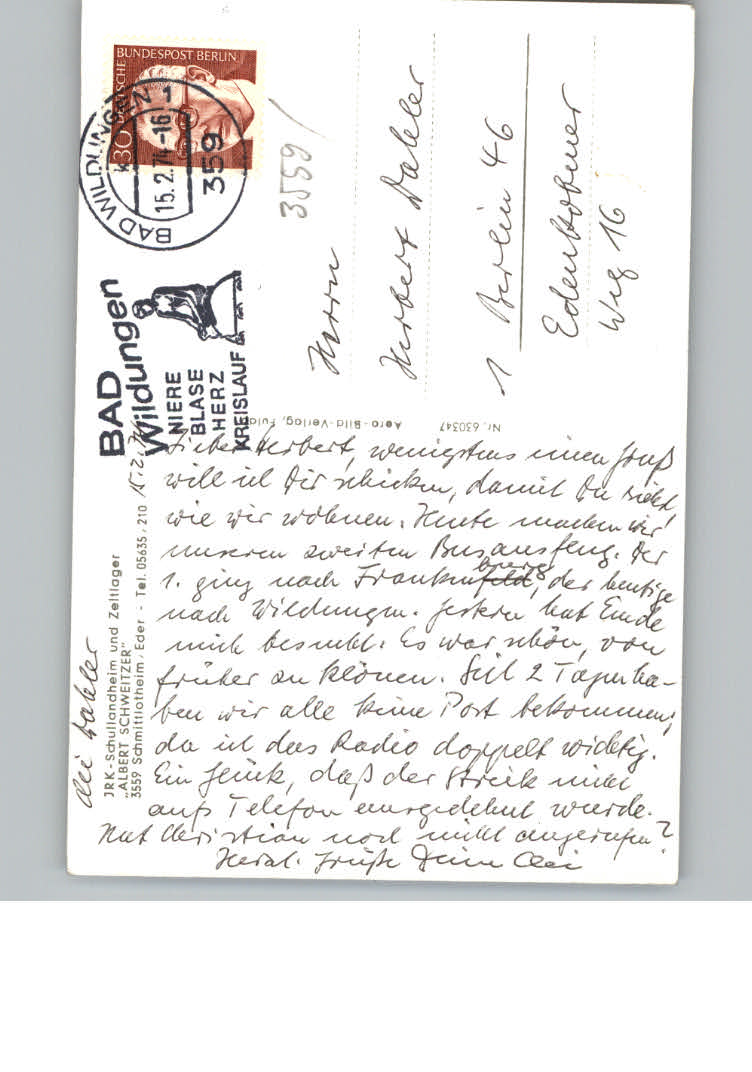 DEUTSCHE BUNDESPOST BERLIN
30
BAD WILDUNGEN 1
15.2.74-16
359
BAD
Wildungen
NIERE
BLASE
HERZ
KREISLAUF
3559
Herrn
Herbert Dahler
1 Berlin 46
Edenkobener
Weg 16
Aero-Bild-Verlag, Fulda
Nr. 630347
JRK-Schullandheim und Zeltlager
„ALBERT SCHWEITZER"
3559 Schmittlotheim/Eder - Tel. 05635/210
15.2.74
Lieber Herbert, wenigstens einen Gruß
will ich Dir schicken, damit Du siehst,
wie wir wohnen. Heute machen wir
unseren zweiten Busausflug. Der
1. ging nach Frankenberg, der heutige
nach Wildungen. Gestern hat
mich besucht. Es war schön, von
früher zu klönen. Seit 2 Tagen ha-
ben wir alle keine Post bekommen,
da ist das Radio doppelt wichtig.
Ein Glück, daß der Streik nicht
aufs Telefon ausgedehnt wurde.
Hat Christian noch nicht angerufen?
Herzl. Grüße Deine
Dahler